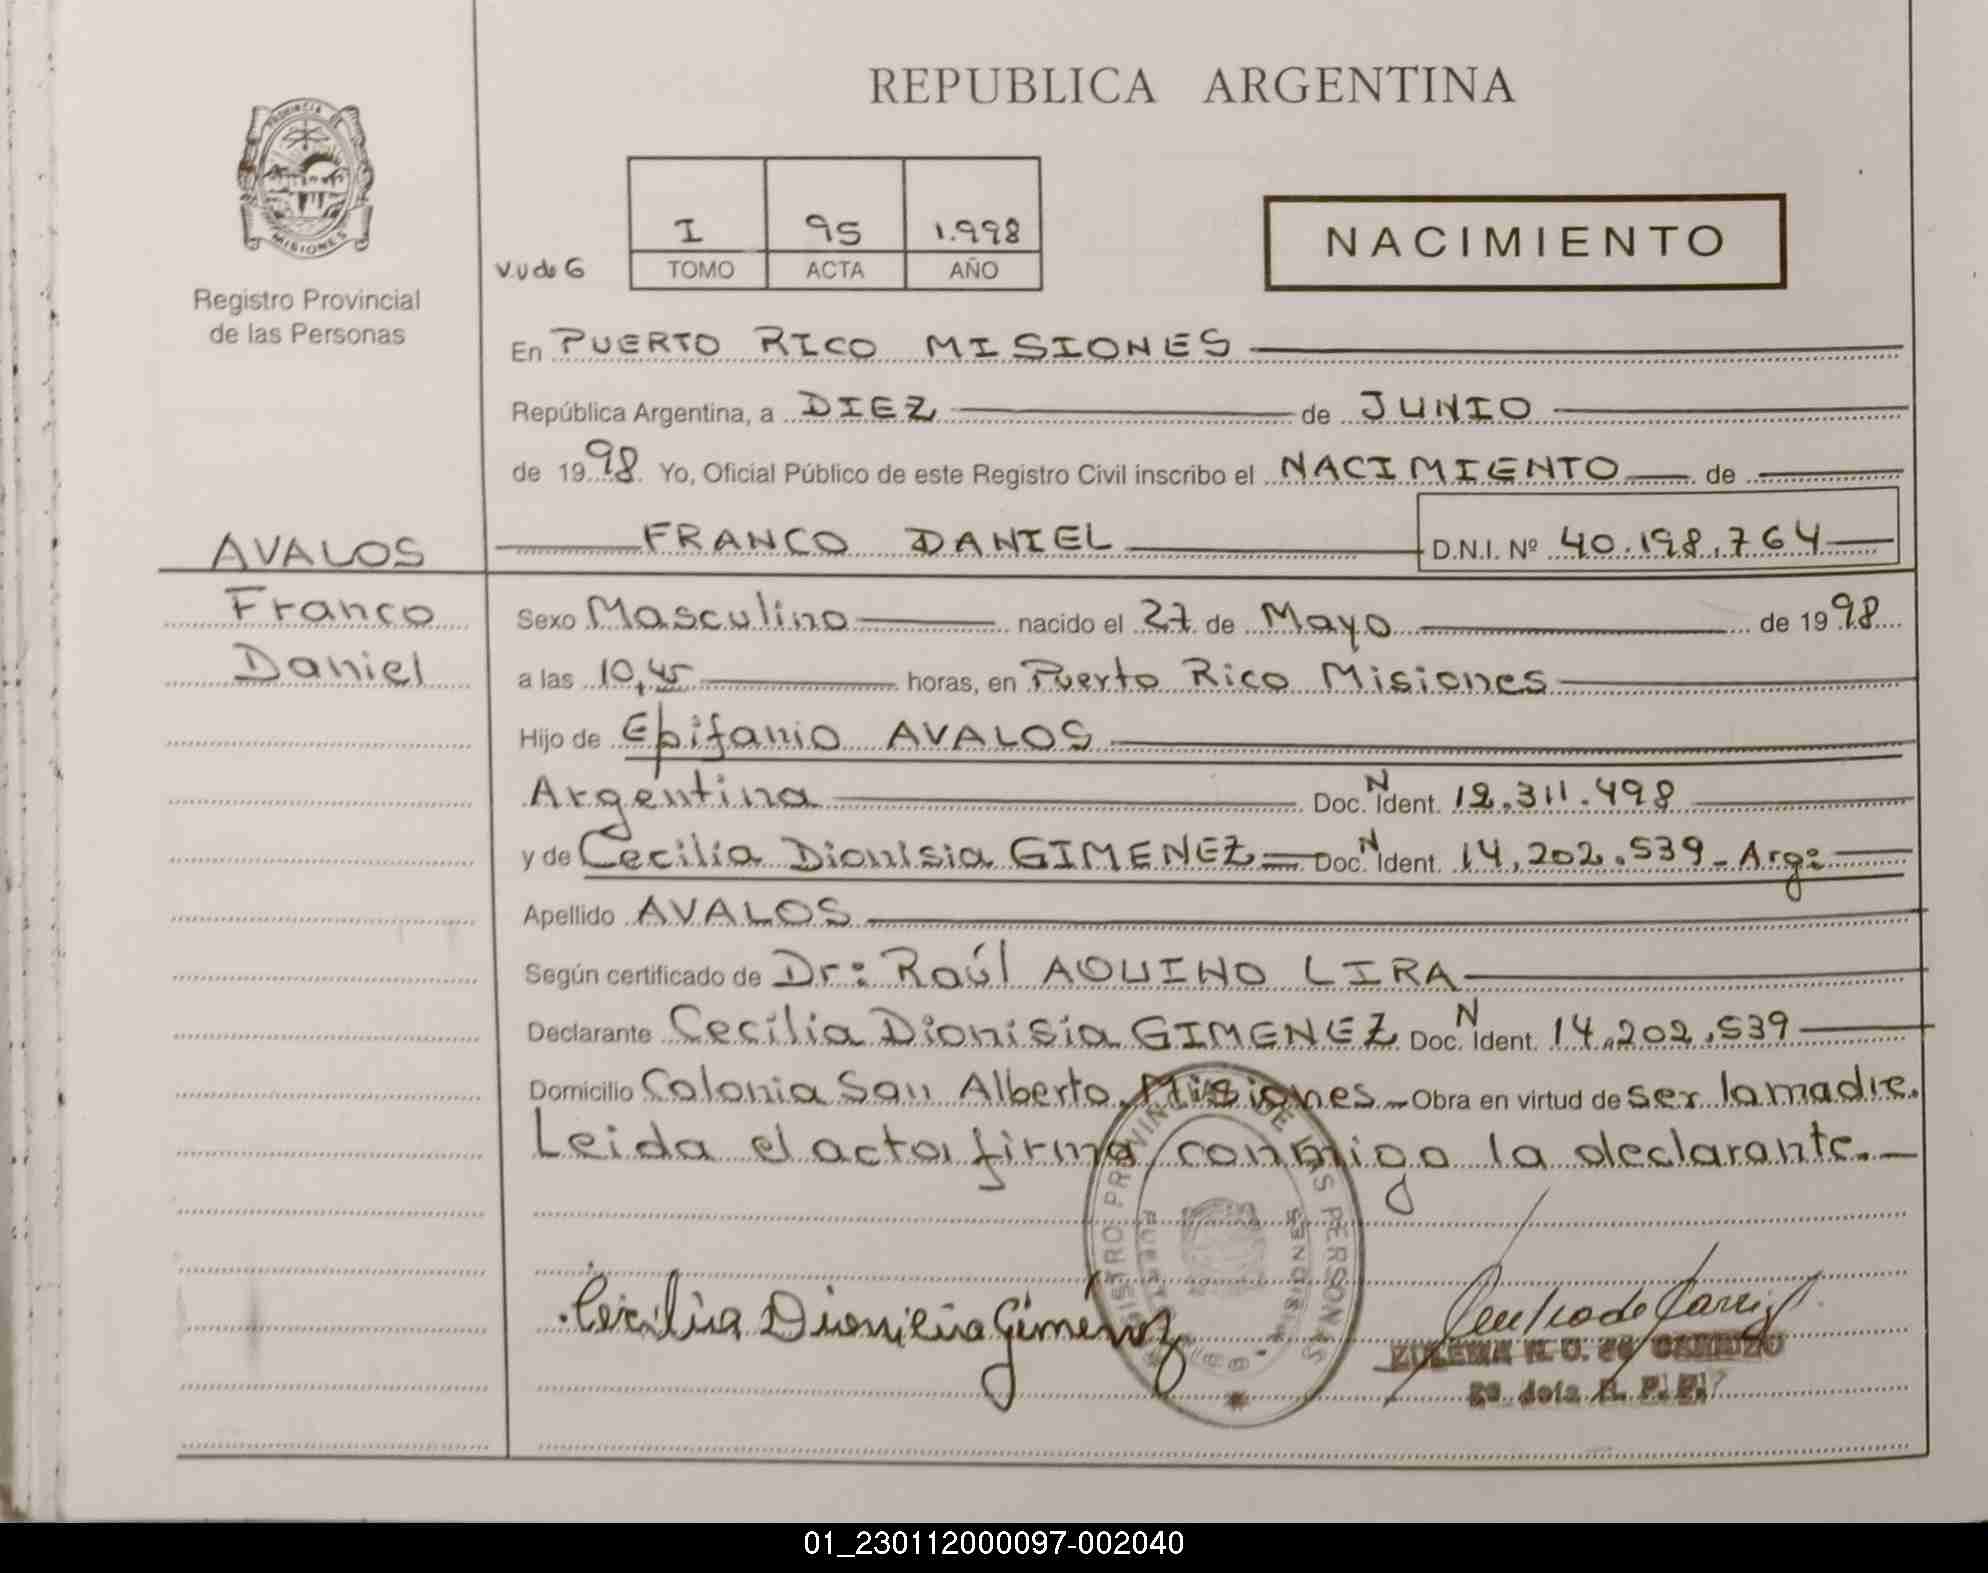 REPUBLICA ARGENTINA
PROVINCIA DE
MISIONES
Registro Provincial
de las Personas
I 95 1.998
TOMO ACTA AÑO
NACIMIENTO
En PUERTO RICO MISIONES
República Argentina, a DIEZ de JUNIO
de 1998 Yo, Oficial Público de este Registro Civil inscribo el NACIMIENTO de
FRANCO DANIEL D.N.I. Nº 40.198.764
AVALOS
Franco
Daniel
Sexo Masculino nacido el 27 de Mayo de 1998
a las 10,45 horas, en Puerto Rico Misiones
Hijo de Epifanio AVALOS
Argentina Doc. N Ident. 12.311.498
y de Cecilia Dionisia GIMENEZ = Doc. N Ident. 14.202.539 - Arg:
Apellido AVALOS
Según certificado de Dr: Raúl AQUINO LIRA
Declarante Cecilia Dionisia GIMENEZ Doc. N Ident. 14.202.539
Domicilio Colonia San Alberto, Misiones - Obra en virtud de ser la madre.
Leida el acta, firma conmigo la declarante. -
REGISTRO PROVINCIAL DE LAS PERSONAS
PUERTO RICO - MISIONES
Cecilia Dionicia Giménez
01_230112000097-002040